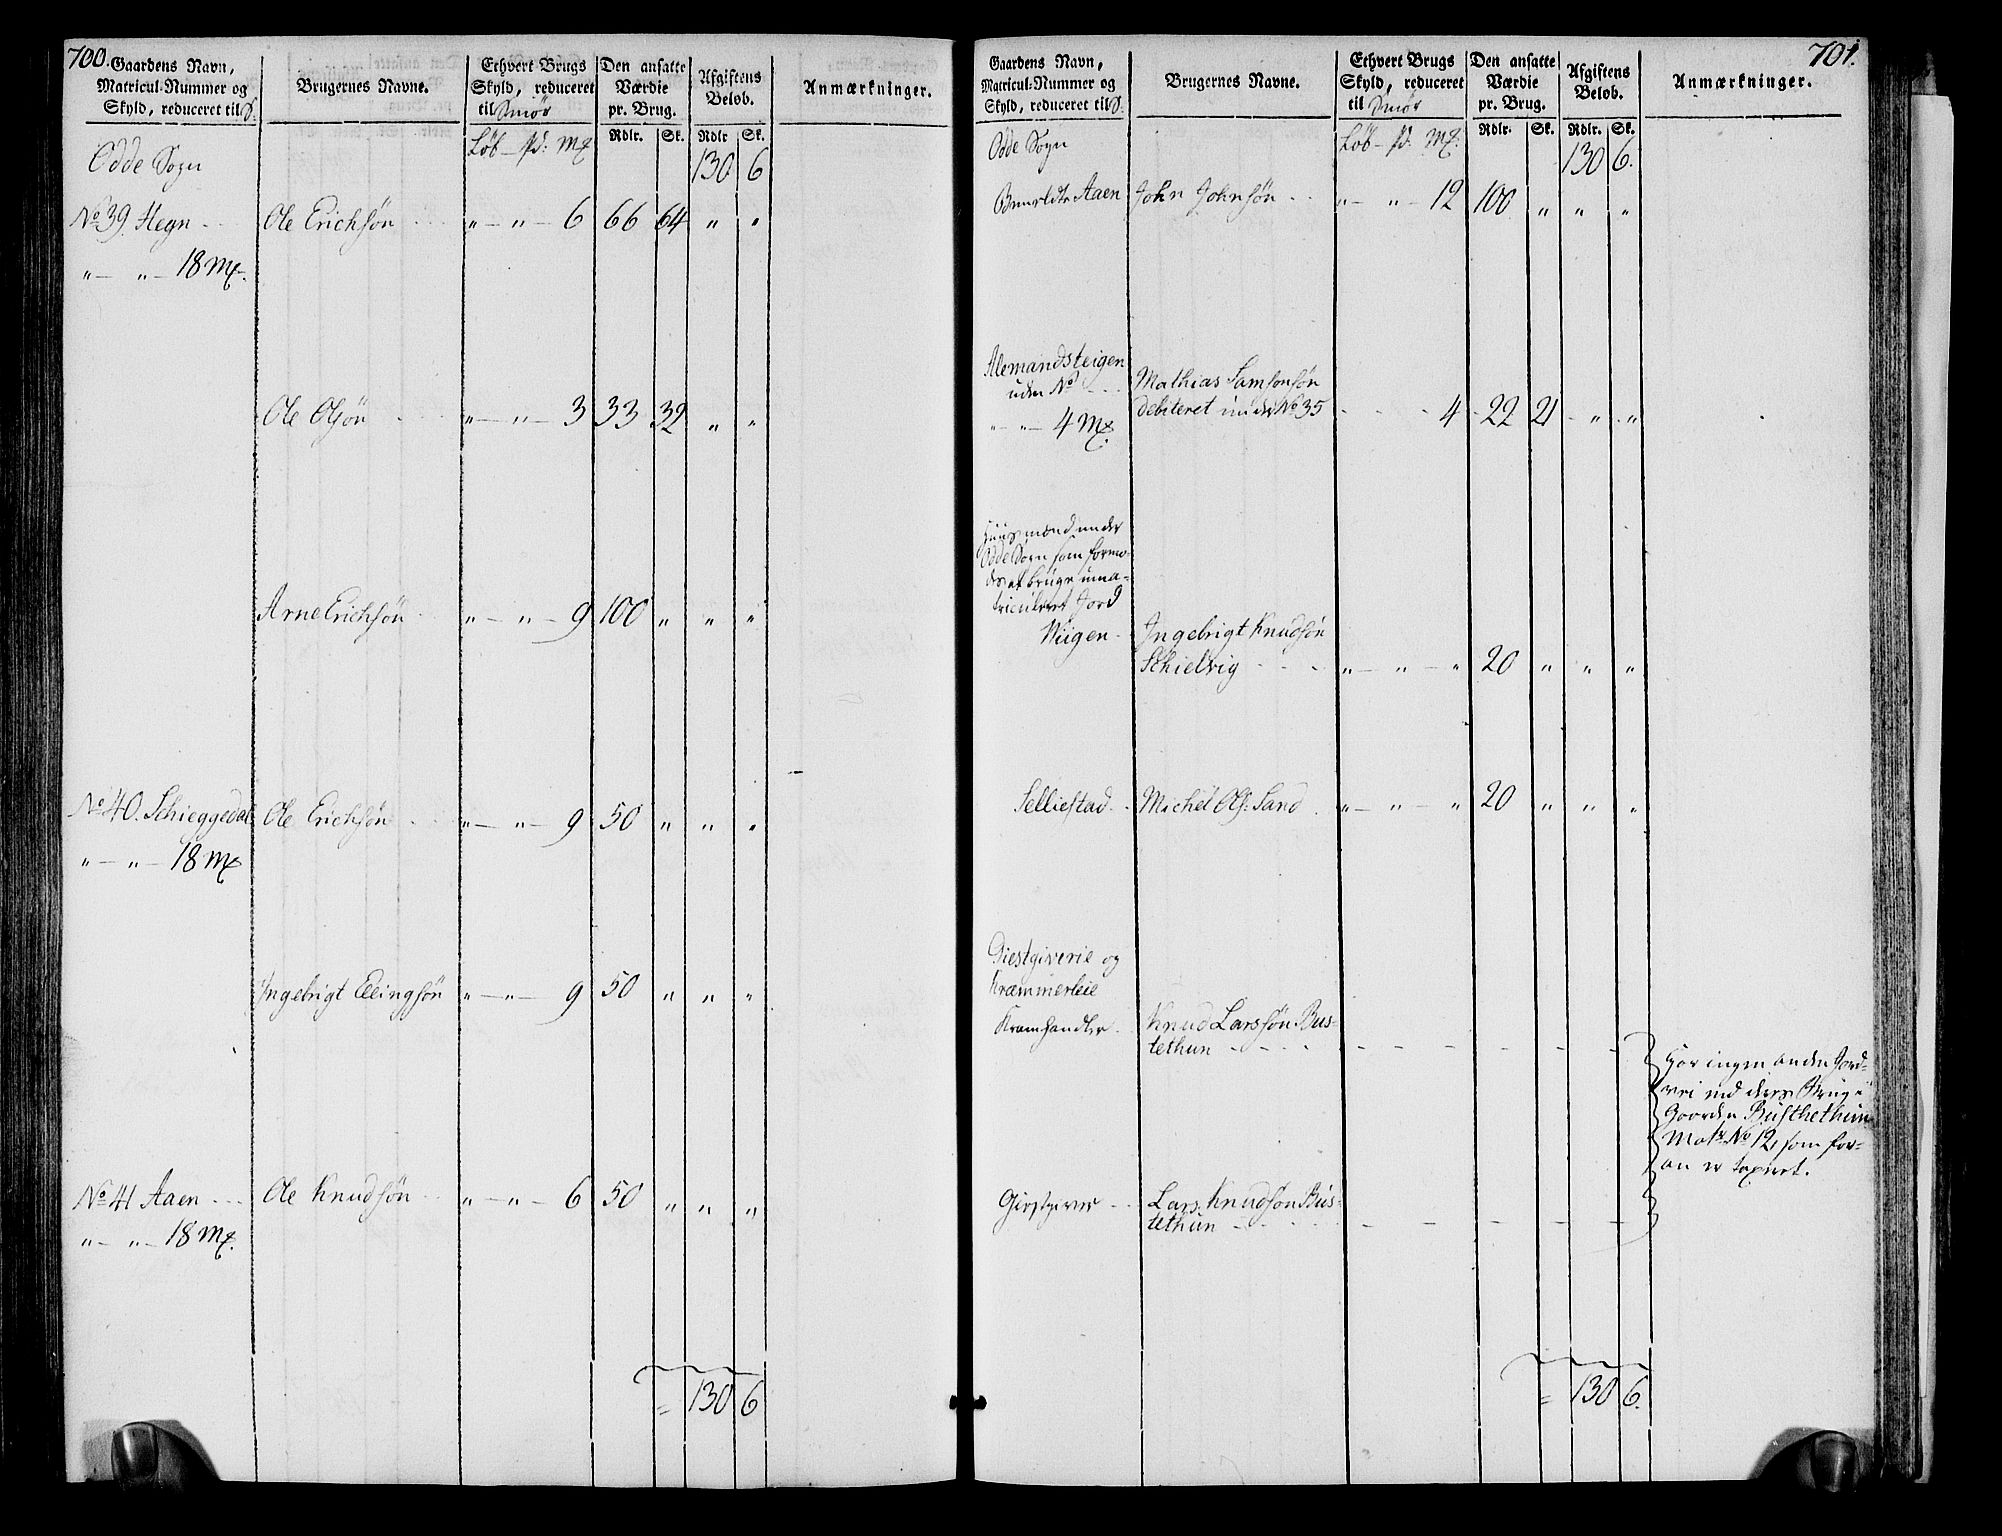 700.
Gaardens Navn,
Matricul-Nummer og
Skyld, reduceret til S:
Brugernes Navne.
Ethvert Brugs
Skyld, reduceret
til Smör
Den ansatte
Værdie
pr. Brug.
Afgiftens
Beløb.
Anmærkninger.
Rdlr. Sk. Rdlr Sk.
Odde Sogn Löb - pd: Mk 130 6
No 39. Hegn Ole Erichsön " - " - 6 66 64 " "
" - " - 18 Mk.
Ole Olsön " - " - 3 33 32 " "
Arne Erichsön " - " - 9 100 " " "
No 40. Schieggedal Ole Erichsön " - " - 9 50 " " "
" - " - 18 Mk
Ingebrigt Ellingsön " - " - 9 50 " " "
No 41 Aaen Ole Knudsön " - " - 6 50 " " "
" - " - 18 Mk.
= 130 6
701.
Gaardens Navn,
Matricul-Nummer og
Skyld, reduceret til S:
Brugernes Navne.
Ethvert Brugs
Skyld, reduceret
til Smör
Den ansatte
Værdie
pr. Brug.
Afgiftens
Beløb.
Anmærkninger.
Rdlr. Sk. Rdlr. Sk.
Odde Sogn Löb - pd: Mk: 130 6.
Aaen John Johnsön " - " - 12 100 " " "
Alemandsteigen
uden No Mathias Samsonsön
" " - 4 Mk. debiteret under No 35 4 22 21 " "
Huusmænd under
Odde Sogn som formo-
des at bruge uma-
triculeret Jord
Wiigen - Ingebrigt Knudsön
Schielvig " - " - " 20 " " "
Selliestad Michel Ols: Sand " - " - " 20 " " "
Giestgiverie og
Kræmmerleie
Kramhandler Knud Larssön Bus-
tethun
Har ingen anden Jord-
vei end deres Brug i
Gaarden Busthethun
Matr No 12, som for-
an er taxeret.
Giestgiver Lars Knudsön Bus-
tethun
= 130 6.